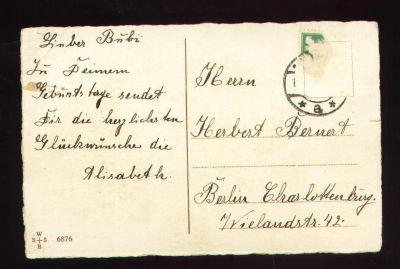 Lieber Bubi
Zu Deinem
Geburtstage sendet
Dir die herzlichsten
Glückwünsche die
Elisabeth.
W
S+S
B
6876
Herrn
Herbert Bernert
Berlin Charlottenburg.
Wielandstr. 42.
* a *